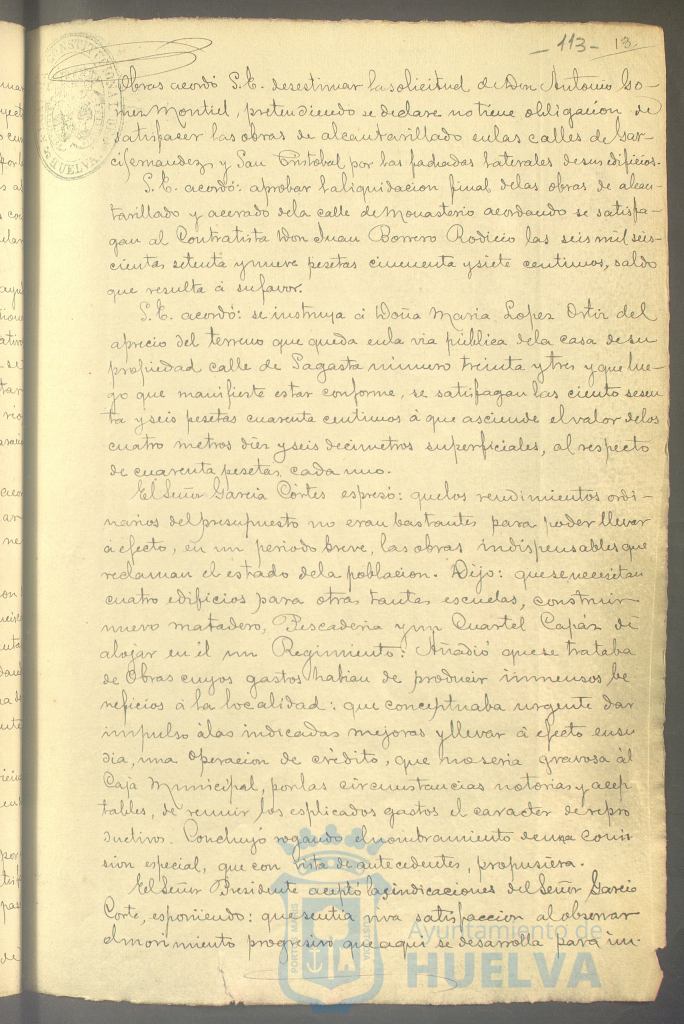 -113- 13.
Obras acordó S.E. desestimar la solicitud de Don Antonio Go-
mez Montiel, pretendiendo se declare no tiene obligación de
satisfacer las obras de alcantarillado en las calles de Gar-
cifernandez y San Cristobal por las fachadas laterales de sus edificios.
S.E. acordó: aprobar la liquidacion final de las obras de alcan-
tarillado y acerado de la calle de Monasterio acordando se satisfa-
gan al Contratista Don Juan Borrero Rodicio las seis mil seis-
cientas setenta y nueve pesetas cincuenta y siete centimos, saldo
que resulta á su favor.
S.E. acordó: se instruya á Doña Maria Lopez Ortiz del
aprecio del terreno que queda en la via pública de la casa de su
propiedad calle de Sagasta número treinta y tres y que lue-
go que manifieste estar conforme, se satisfagan las ciento sesen
ta y seis pesetas cuarenta centimos á que asciende el valor de los
cuatro metros diez y seis decimetros superficiales, al respecto
de cuarenta pesetas cada uno.
El Señor Garcia Cortes espresó: que los rendimientos ordi-
narios del presupuesto no eran bastantes para poder llevar
á efecto, en un periodo breve, las obras indispensables que
reclaman el estado de la poblacion. Dijo: que se necesitan
cuatro edificios para otras tantas escuelas, construir
nuevo matadero, Pescaderia y un Cuartel Capáz de
alojar en él un Regimiento: Añadió que se trataba
de Obras cuyos gastos habian de producir inmensos be
neficios á la localidad: que conceptuaba urgente dar
impulso á las indicadas mejoras y llevar á efecto en su
dia, una operacion de crédito, que no seria gravosa al
Caja Municipal, por las circunstancias notorias y acep
tables, de reunir los esplicados gastos el caracter de repro
ductivos. Concluyó rogando el nombramiento de una Comi-
sion especial, que con vista de antecedentes, propusiera.
El Señor Presidente aceptó las indicaciones del Señor Garcia
Corte, esponiendo: que sentia viva satisfaccion al observar
el movimiento progresivo que aqui se desarrolla para im-
Ayuntamiento de
HUELVA